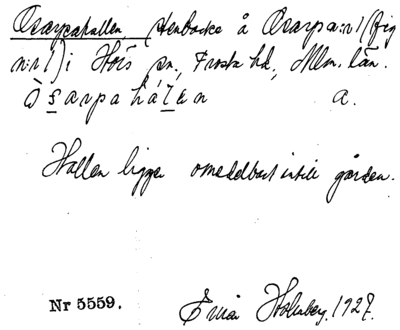 Osarpahallen, stenbacke å Osarpa nr 1 (fig
n:r 1) i Hörs sn, Frosta hd, Mlm. län.
Òsarpahálen a.
Hallen ligger omedelbart intill gården.
Nr 5559. Einar Holmberg. 1927.